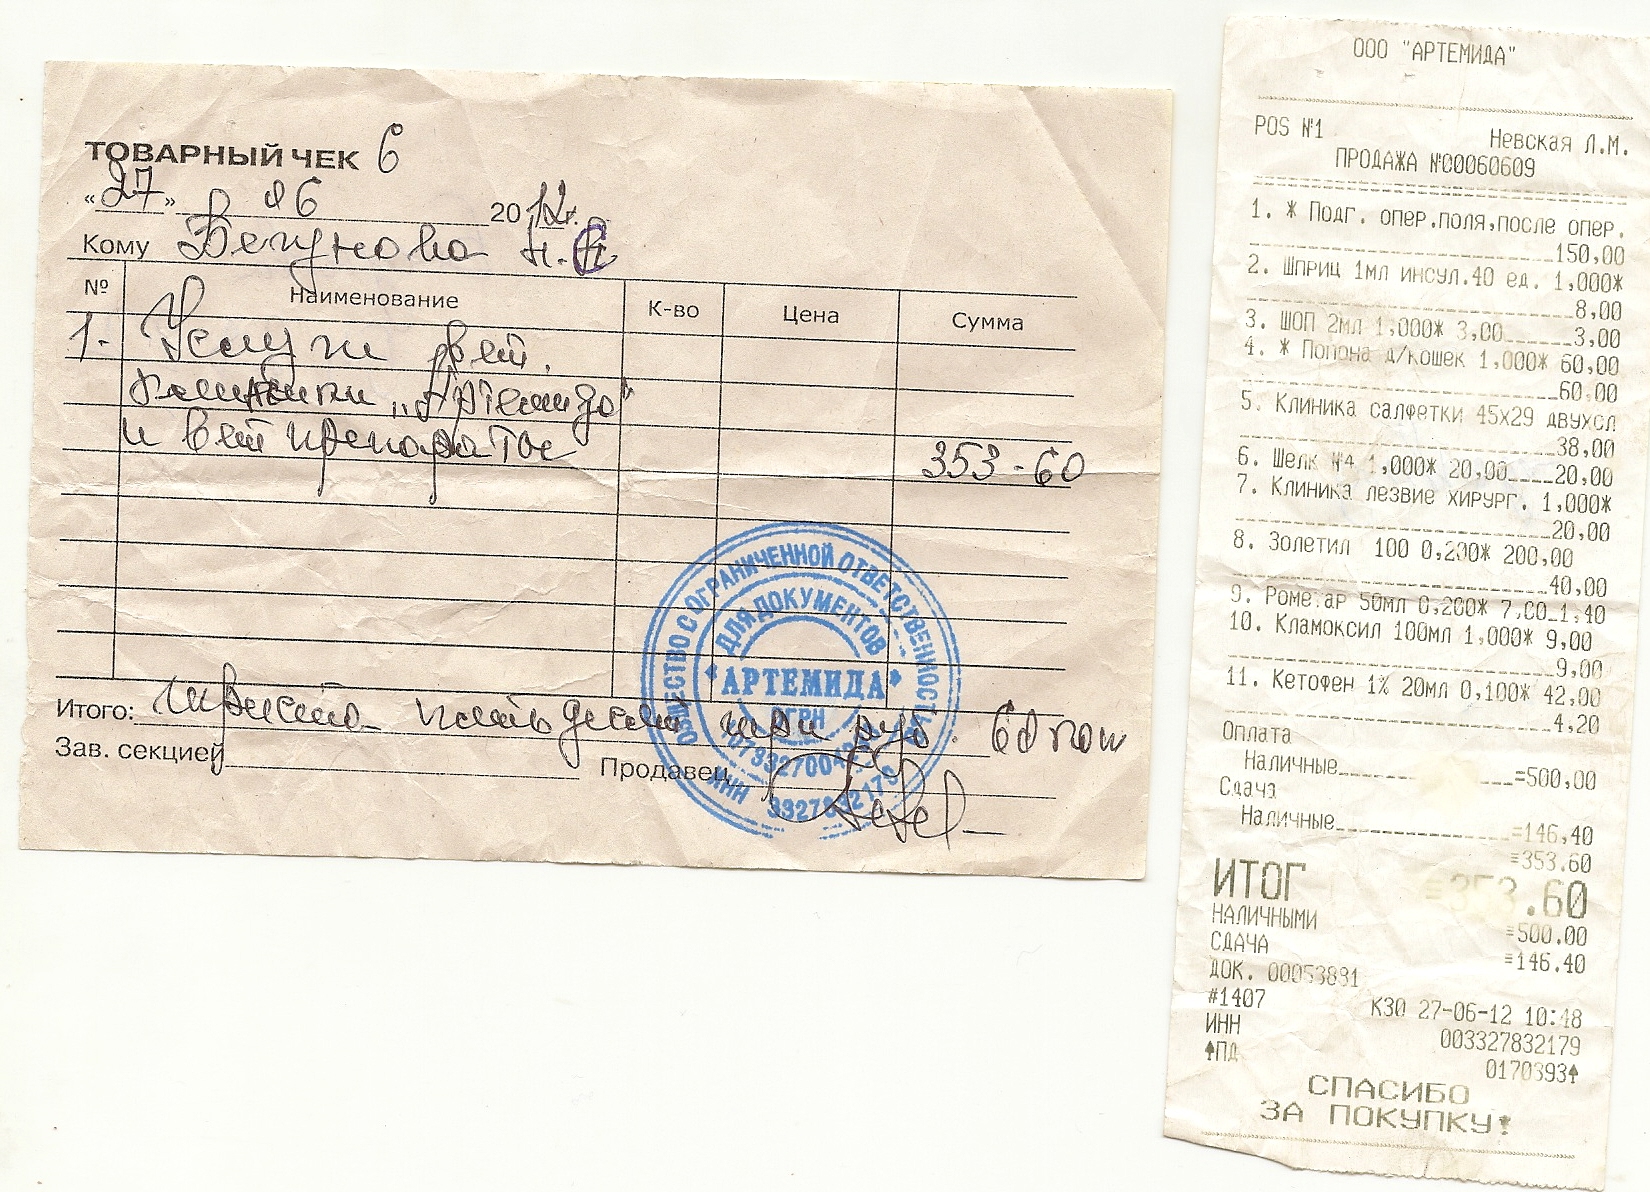 ТОВАРНЫЙ ЧЕК 6
«27» 06 2012г.
Кому Бегунова Н.
№ Наименование К-во Цена Сумма
1. Услуги вет.
клиники „Артемида"
и вет препараты 353-60
Итого: триста пятьдесят три руб. 60 коп
Зав. секцией Продавец
ОБЩЕСТВО С ОГРАНИЧЕННОЙ ОТВЕТСТВЕННОСТЬЮ
ДЛЯ ДОКУМЕНТОВ
"АРТЕМИДА"
ОГРН
ИНН
ООО "АРТЕМИДА"
POS №1 Невская Л.М.
ПРОДАЖА №00060609
1. * Подг. опер.поля,после опер.
150,00
2. Шприц 1мл инсул.40 ед. 1,000*
8,00
3. ШОП 2мл 1,000* 3,00 3,00
4. * Попона д/кошек 1,000* 60,00
60,00
5. Клиника салфетки 45х29 двухсл
38,00
6. Шелк №4 1,000* 20,00 20,00
7. Клиника лезвие хирург. 1,000*
20,00
8. Золетил 100 0,200* 200,00
40,00
9. 50мл 0,200* 7,00 1,40
10. Кламоксил 100мл 1,000* 9,00
9,00
11. Кетофен 1% 20мл 0,100* 42,00
4,20
Оплата
Наличные =500,00
Сдача
Наличные =146,40
=353.60
ИТОГ =353.60
НАЛИЧНЫМИ =500.00
СДАЧА =146.40
ДОК. 00053881
#1407 КЗО 27-06-12 10:48
ИНН 003327832179
ПД 0170393
СПАСИБО
ЗА ПОКУПКУ!